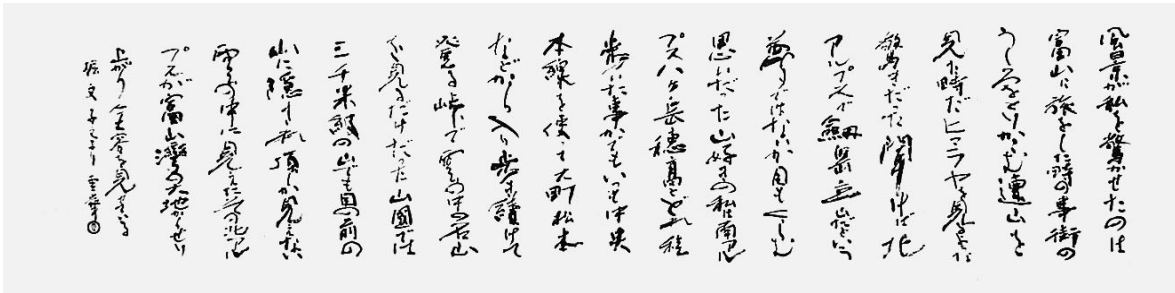 風景が私を驚かせたのは
富山に旅をした時の事街の
うしろをとりかこむ連山を
見た時だヒマラヤを見る様な
驚きだった聞けば北
アルプスで劔岳立山だという
前ではないが目もくらむ
思いだった山好きの私は南アル
プス八ケ岳穂高とどれ程
歩いた事かでもいつも中央
本線を使って大町松本
などから入り歩き続けて
発見る峠で雲の中の岩山
を見るだけだった山国では
三千米級の山でも目の前の
山に隠され頂しか見えない
雲の中に見えたその北アル
プスが富山湾の大地からせり
上がり全容を見せる